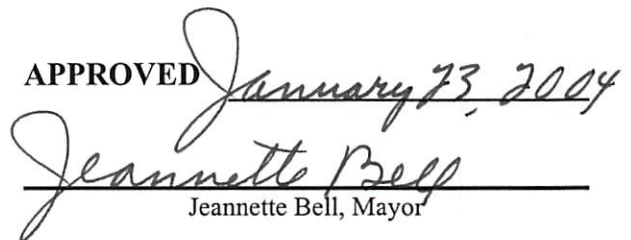 APPROVED January 23, 2004
Jeannette Bell
Jeannette Bell, Mayor